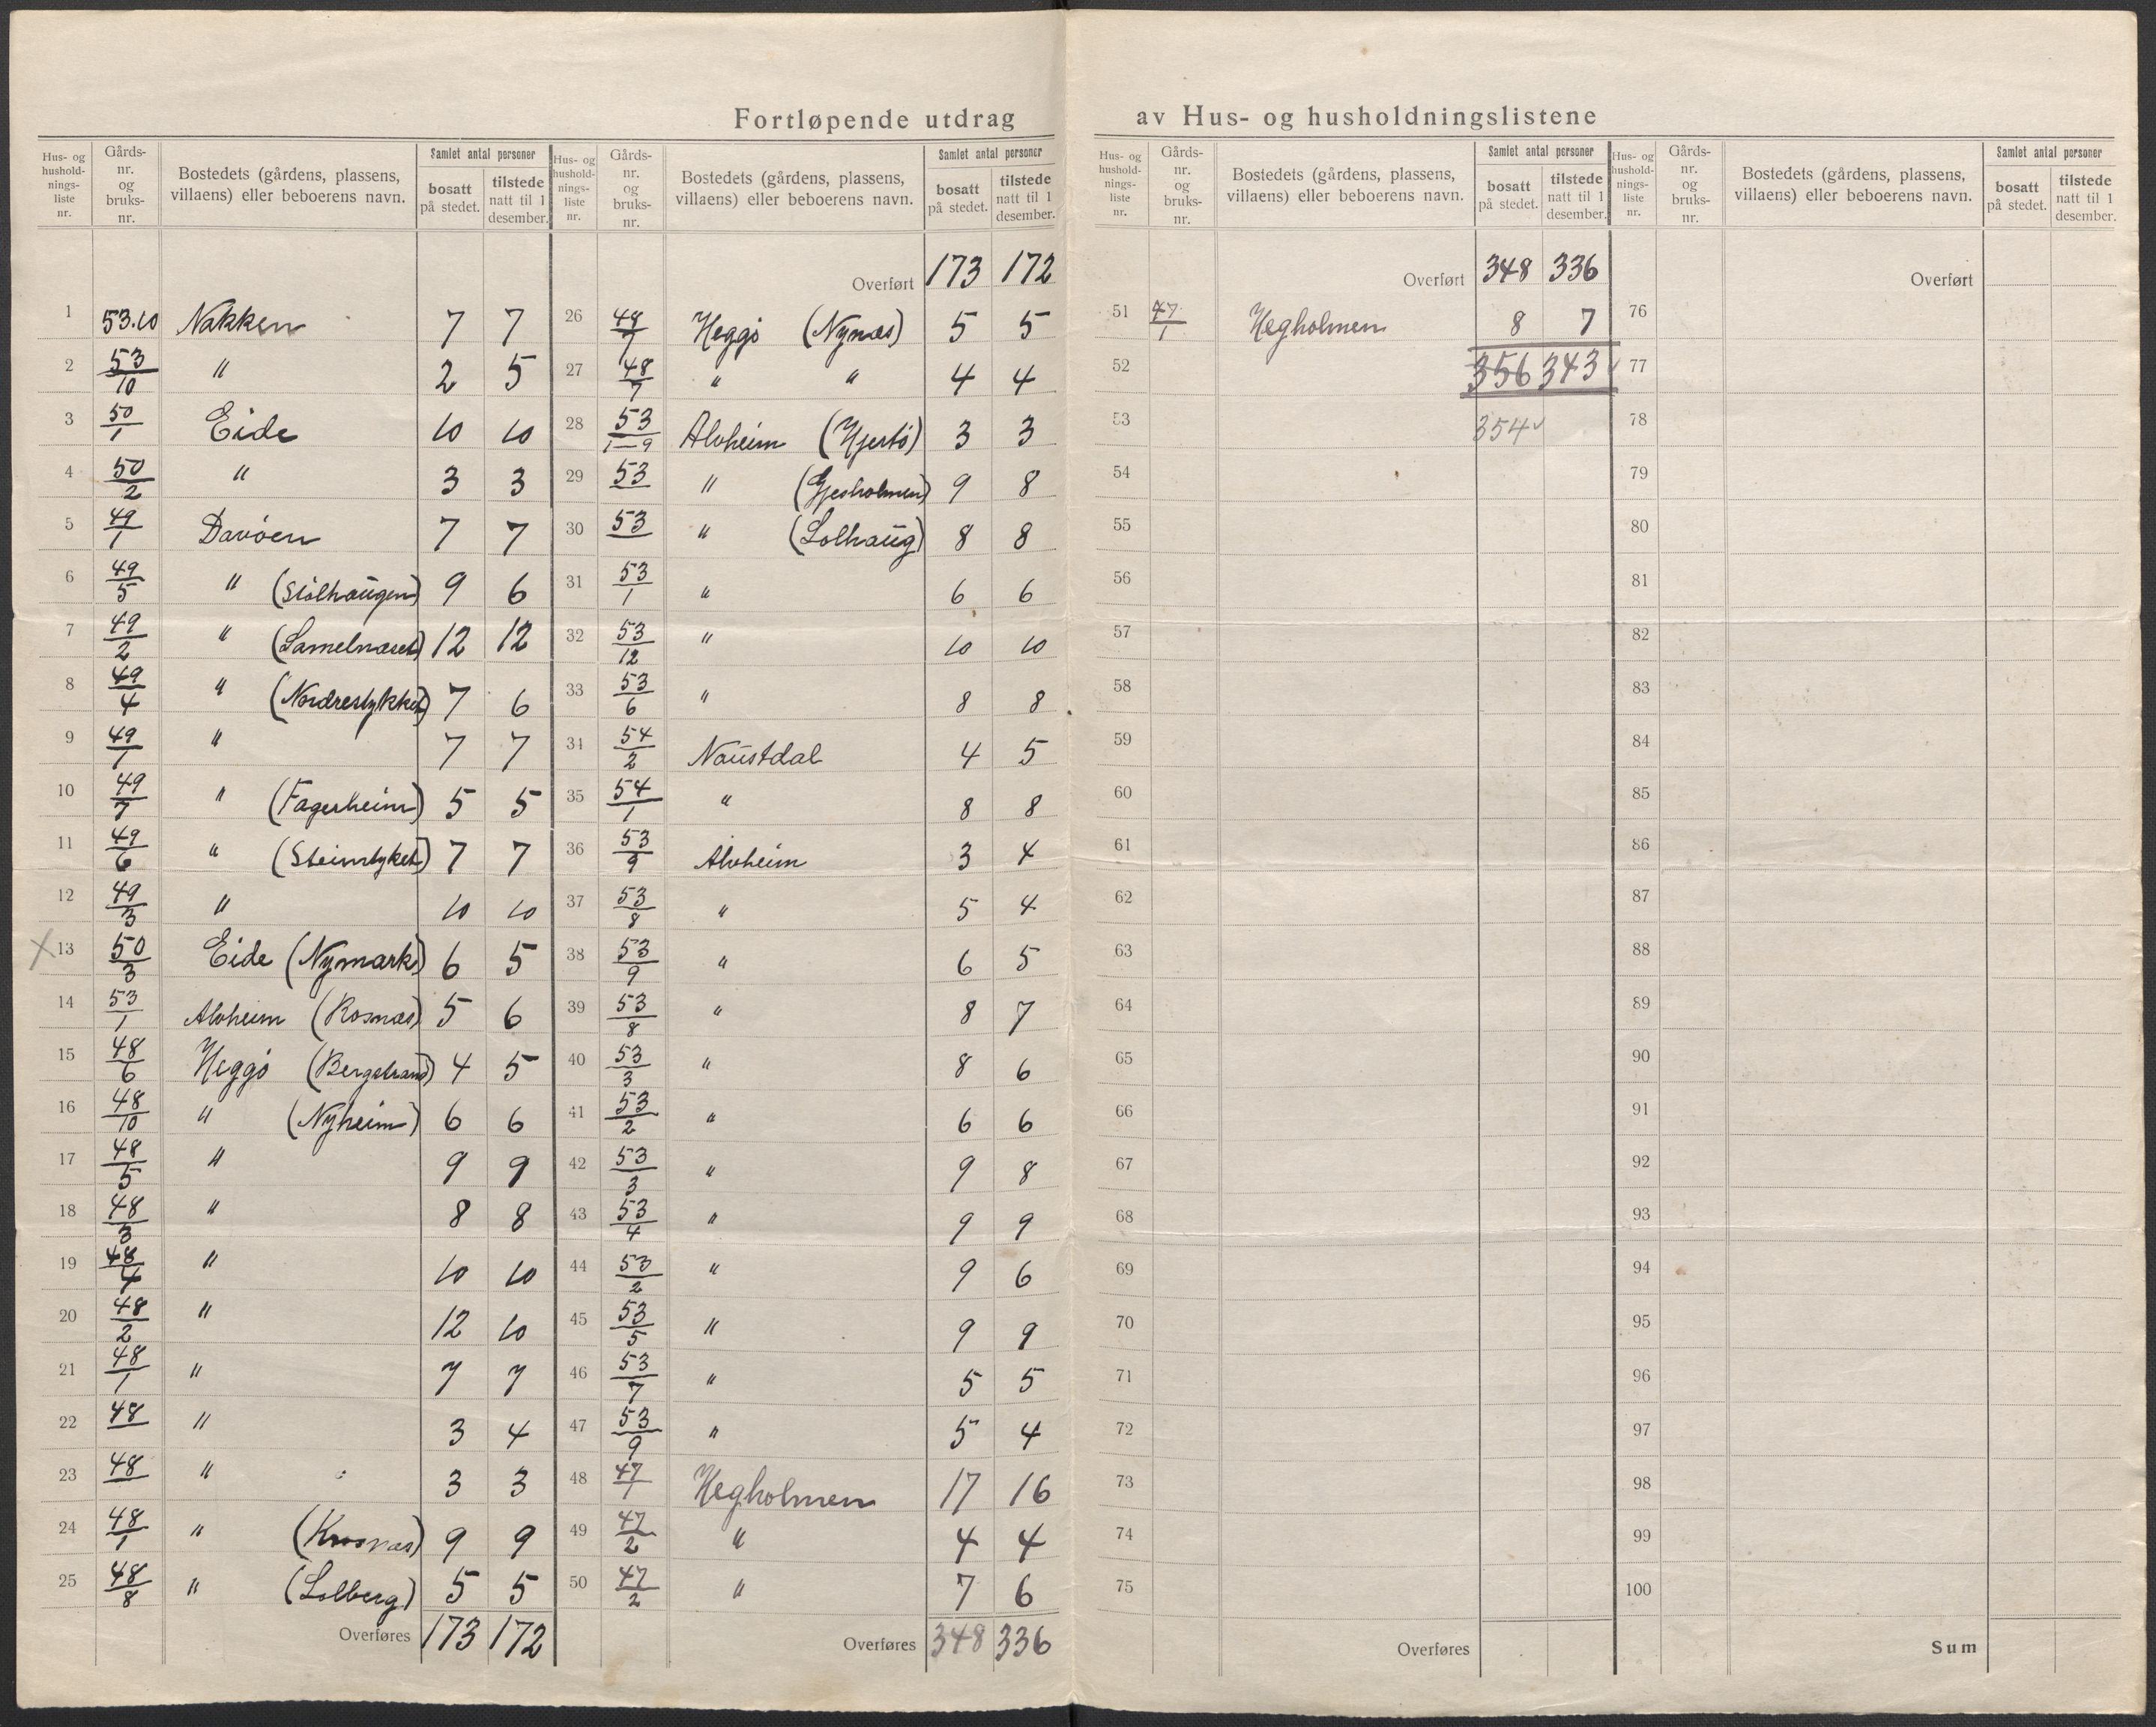 Fortløpende utdrag av Hus- og husholdningslistene
Hus- og husholdningsliste nr. | Gårdsnr. og bruksnr. | Bostedets (gårdens, plassens, villaens) eller beboerens navn. | Samlet antal personer | bosatt på stedet. | tilstede natt til 1 desember.
1 53.10 Nakken 7 7
2 53/10 " 2 5
3 50/1 Eide 10 10
4 50/2 " 3 3
5 49/1 Davøen 7 7
6 49/5 " (Stølhaugen) 9 6
7 49/2 " (Lamelnæset) 12 12
8 49/4 " (Nordrestykket) 7 6
9 49/1 " 7 7
10 49/7 " (Fagerheim) 5 5
11 49/6 " (Steinstyket) 7 7
12 49/3 " 10 10
X 13 50/3 Eide (Nymark) 6 5
14 53/1 Alvheim (Rosnæs) 5 6
15 48/6 Heggø (Bergstrand) 4 5
16 48/10 " (Nyheim) 6 6
17 48/5 " 9 9
18 48/3 " 8 8
19 48/4 " 10 10
20 48/2 " 12 10
21 48/1 " 7 7
22 48 " 3 4
23 48 " 3 3
24 48/1 " (Krosnæs) 9 9
25 48/8 " (Solberg) 5 5
Overføres 173 172
Hus- og husholdningsliste nr. | Gårdsnr. og bruksnr. | Bostedets (gårdens, plassens, villaens) eller beboerens navn. | Samlet antal personer | bosatt på stedet. | tilstede natt til 1 desember.
Overført 173 172
26 48/7 Heggø (Nynæs) 5 5
27 48/7 " " 4 4
28 53/1-9 Alvheim (Hjertø) 3 3
29 53 " (Gjesholmen) 9 8
30 53 " (Solhaug) 8 8
31 53/1 " 6 6
32 53/12 " 10 10
33 53/6 " 8 8
34 54/2 Naustdal 4 5
35 54/1 " 8 8
36 53/9 Alvheim 3 4
37 53/8 " 5 4
38 53/9 " 6 5
39 53/8 " 8 7
40 53/3 " 8 6
41 53/2 " 6 6
42 53/3 " 9 8
43 53/4 " 9 9
44 53/2 " 9 6
45 53/5 " 9 9
46 53/7 " 5 5
47 53/9 " 5 4
48 47/1 Hegholmen 17 16
49 47/2 " 4 4
50 47/2 " 7 6
Overføres 348 336
Hus- og husholdningsliste nr. | Gårdsnr. og bruksnr. | Bostedets (gårdens, plassens, villaens) eller beboerens navn. | Samlet antal personer | bosatt på stedet. | tilstede natt til 1 desember.
Overført 348 336
51 47/1 Hegholmen 8 7
52 356 343 ✓
53 354 ✓
54
55
56
57
58
59
60
61
62
63
64
65
66
67
68
69
70
71
72
73
74
75
Overføres
Hus- og husholdningsliste nr. | Gårdsnr. og bruksnr. | Bostedets (gårdens, plassens, villaens) eller beboerens navn. | Samlet antal personer | bosatt på stedet. | tilstede natt til 1 desember.
Overført
76
77
78
79
80
81
82
83
84
85
86
87
88
89
90
91
92
93
94
95
96
97
98
99
100
Sum